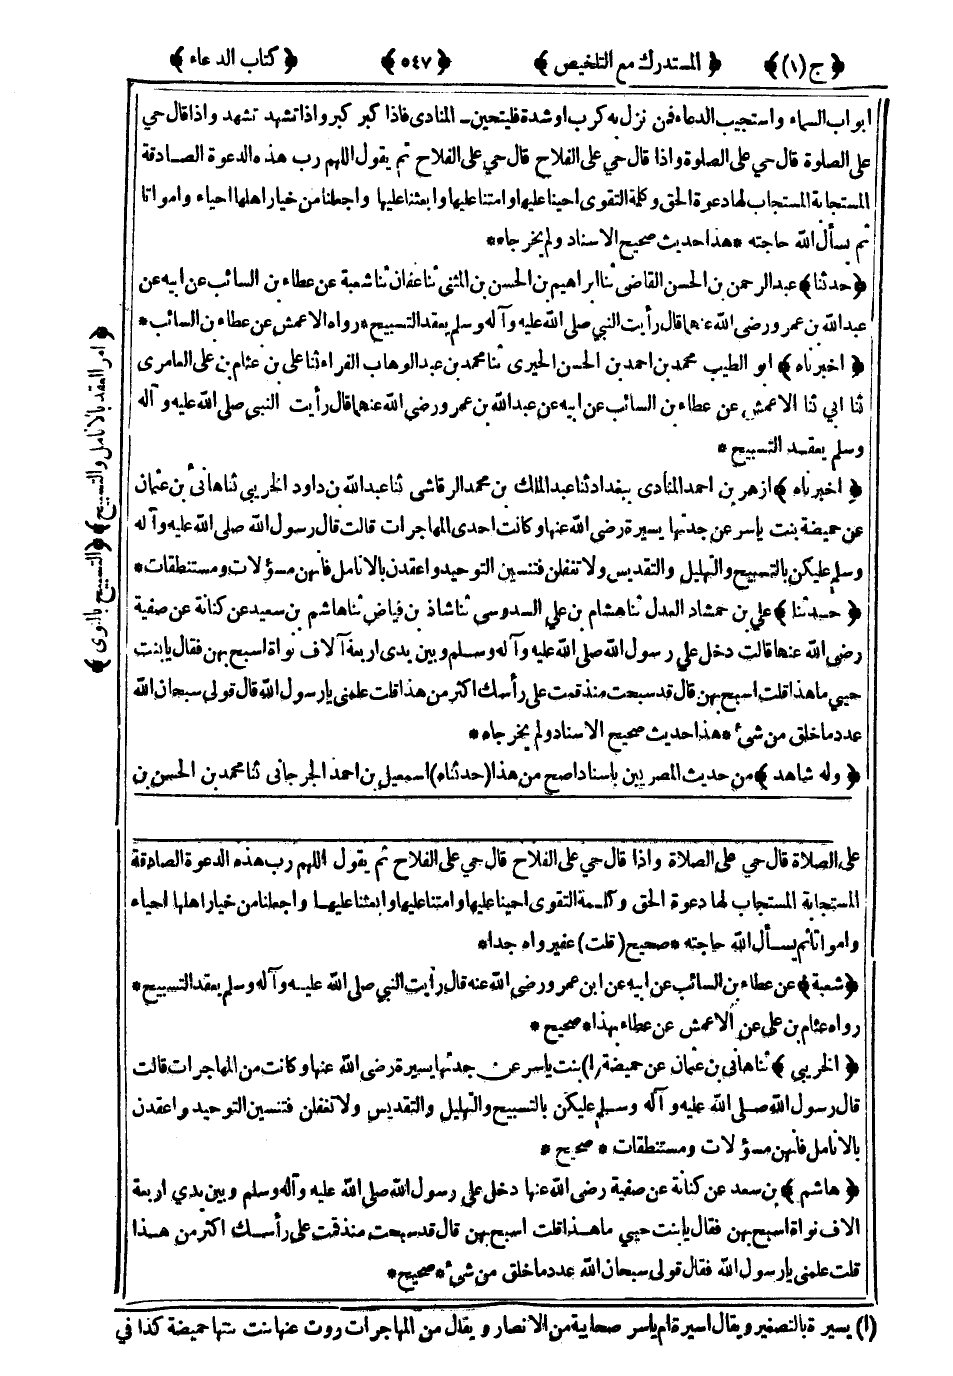 ﴿ ج (١) ﴾ ﴿ المستدرك مع التلخيص ﴾ ﴿ ٥٤٧ ﴾ ﴿ كتاب الدعاء ﴾
ابواب السماء واستجيب الدعاء فمن نزل به كرب اوشدة فليتحين - المنادى فاذا كبر كبر واذا تشهد تشهد واذا قال حي
على الصلوة قال حي على الصلوة واذا قال حي على الفلاح قال حي على الفلاح ثم يقول اللهم رب هذه الدعوة الصادقة
المستجابة المستجاب لها دعوة الحق وكلمة التقوى احينا عليها وامتنا عليها وابعثنا عليها واجعلنا من خيار اهلها احياء وامواتا
ثم يسأل الله حاجته * هذا حديث صحيح الاسناد ولم يخرجاه *
﴿ حدثنا ﴾ عبد الرحمن بن الحسن القاضى ثنا ابراهيم بن الحسن بن المثنى ثنا عفان ثنا شعبة عن عطاء بن السائب عن ابيه عن
عبد الله بن عمرو رضى الله عنهما قال رأيت النبي صلى الله عليه وآله وسلم يعقد التسبيح * رواه الاعمش عن عطاء بن السائب *
﴿ اخبرناه ﴾ ابو الطيب محمد بن احمد بن الحسن الحيرى ثنا محمد بن عبد الوهاب الفراء ثنا على بن عثام بن على العامرى
ثنا ابي ثنا الاعمش عن عطاء بن السائب عن ابيه عن عبد الله بن عمرو رضى الله عنهما قال رأيت النبي صلى الله عليه وآله
وسلم يعقد التسبيح *
﴿ اخبرناه ﴾ ازهر بن احمد المنادى ببغداد ثنا عبد الملك بن محمد الرقاشى ثنا عبد الله بن داود الخريبي ثنا هانئ بن عثمان
عن حميضة بنت ياسر عن جدتها يسيرة رضى الله عنها وكانت احدى المهاجرات قالت قال رسول الله صلى الله عليه وآله
وسلم عليكن بالتسبيح والتهليل والتقديس ولا تغفلن فتنسين التوحيد واعقدن بالانامل فانهن مسؤلات ومستنطقات *
﴿ حدثنا ﴾ علي بن حمشاد العدل ثنا هشام بن علي السدوسى ثنا شاذ بن فياض ثنا هاشم بن سعيد عن كنانة عن صفية
رضى الله عنها قالت دخل علي رسول الله صلى الله عليه وآله وسلم وبين يدى اربعة آلاف نواة اسبح بهن فقال يا بنت
حيي ما هذا قلت اسبح بهن قال قد سبحت منذ قمت على رأسك اكثر من هذا قلت علمنى يا رسول الله قال قولى سبحان الله
عدد ما خلق من شئ * هذا حديث صحيح الاسناد ولم يخرجاه *
﴿ وله شاهد ﴾ من حديث المصريين باسناد اصح من هذا (حدثناه) اسمعيل بن احمد الجرجانى ثنا محمد بن الحسن بن
﴿ امر العقد بالانامل والتسبيح ﴾ ﴿ التسبيح بالنوى ﴾
على الصلاة قال حي على الصلاة واذا قال حي على الفلاح قال حي على الفلاح ثم يقول اللهم رب هذه الدعوة الصادقة
المستجابة المستجاب لها دعوة الحق وكلمة التقوى احينا عليها وامتنا عليها وابعثنا عليها واجعلنا من خيار اهلها احياء
وامواتا ثم يسأل الله حاجته * صحيح (قلت) عفير واه جدا *
﴿ شعبة ﴾ عن عطاء بن السائب عن ابيه عن ابن عمرو رضى الله عنه قال رأيت النبي صلى الله عليه وآله وسلم يعقد التسبيح *
رواه عثام بن على عن الاعمش عن عطاء بهذا * صحيح *
﴿ الخريبي ﴾ ثنا هانى بن عثمان عن حميضة (١) بنت ياسر عن جدتها يسيرة رضى الله عنها وكانت من المهاجرات قالت
قال رسول الله صلى الله عليه وآله وسلم عليكن بالتسبيح والتهليل والتقديس ولا تغفلن فتنسين التوحيد واعقدن
بالانامل فانهن مسؤلات ومستنطقات * صحيح *
﴿ هاشم ﴾ بن سعد عن كنانة عن صفية رضى الله عنها دخل علي رسول الله صلى الله عليه وآله وسلم وبين يدي اربعة
الاف نواة اسبح بهن فقال يا بنت حيي ما هذا قلت اسبح بهن قال قد سبحت منذ قمت على رأسك اكثر من هذا
قلت علمنى يا رسول الله فقال قولى سبحان الله عدد ما خلق من شئ * صحيح *
(١) يسيرة بالتصغير ويقال اسيرة ام ياسر صحابية من الانصار ويقال من المهاجرات روت عنها بنت بنتها حميضة كذا في